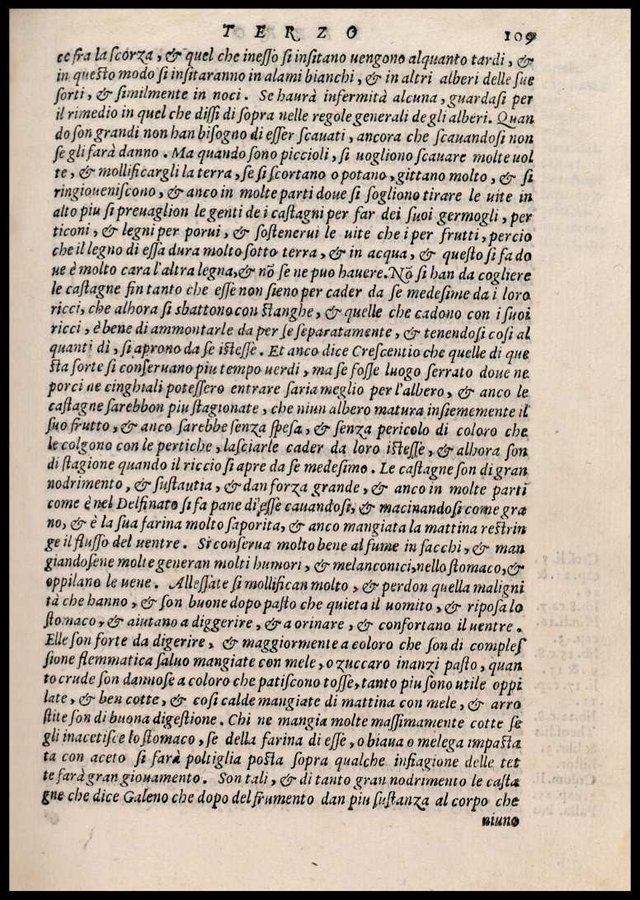 TERZO 109
ce fra la scorza, & quel che inesso si insitano uengono alquanto tardi, &
in questo modo si insitaranno in alami bianchi, & in altri alberi delle sue
sorti, & similmente in noci. Se haurà infermità alcuna, guardasi per
il rimedio in quel che dissi di sopra nelle regole generali de gli alberi. Quan
do son grandi non han bisogno di esser scauati, ancora che scauandosi non
se gli farà danno. Ma quando sono piccioli, si uogliono scauare molte uol
te, & mollificargli la terra, se si scortano o potano, gittano molto, & si
ringioueniscono, & anco in molte parti doue si sogliono tirare le uite in
alto piu si preuaglion le genti de i castagni per far dei suoi germogli, per
ticoni, & legni per porui, & sostenerui le uite che i per frutti, percio
che il legno di essa dura molto sotto terra, & in acqua, & questo si fa do
ue è molto cara l'altra legna, & nō se ne puo hauere. Nō si han da cogliere
le castagne fin tanto che esse non sieno per cader da se medesime da i loro
ricci, che alhora si sbattono con stanghe, & quelle che cadono con i suoi
ricci, è bene di ammontarle da per se separatamente, & tenendosi cosi al
quanti dì, si aprono da se istesse. Et anco dice Crescentio che quelle di que
sta sorte si conseruano piu tempo uerdi, ma se fosse luogo serrato doue ne
porci ne cinghiali potessero entrare saria meglio per l'albero, & anco le
castagne sarebbon piu stagionate, che niun albero matura insiememente il
suo frutto, & anco sarebbe senza spesa, & senza pericolo di coloro che
le colgono con le pertiche, lasciarle cader da loro istesse, & alhora son
di stagione quando il riccio si apre da se medesimo. Le castagne son di gran
nodrimento, & sustautia, & dan forza grande, & anco in molte parti
come è nel Delfinato si fa pane di esse cauandosi, & macinandosi come gra
no, & è la sua farina molto saporita, & anco mangiata la mattina restrin
ge il flusso del uentre. Si conserua molto bene al fume in sacchi, & man
giandosene molte generan molti humori, & melanconici, nello stomaco, &
oppilano le uene. Allessate si mollifican molto, & perdon quella maligni
tà che hanno, & son buone dopo pasto che quieta il uomito, & riposa lo
stomaco, & aiutano a diggerire, & a orinare, & confortano il uentre.
Elle son forte da digerire, & maggiormente a coloro che son di comples
sione flemmatica saluo mangiate con mele, o zuccaro inanzi pasto, quan
to crude son dannose a coloro che patiscono tosse, tanto piu sono utile oppi
late, & ben cotte, & cosi calde mangiate di mattina con mele, & arro
stite son di buona digestione. Chi ne mangia molte massimamente cotte se
gli inacetisce lo stomaco, se della farina di esse, o biaua o melega impasta
ta con aceto si farà poltiglia posta sopra qualche infiagione delle tet
te farà gran giouamento. Son tali, & di tanto gran nodrimento le casta
gne che dice Galeno che dopo del frumento dan piu sustanza al corpo che
niuno